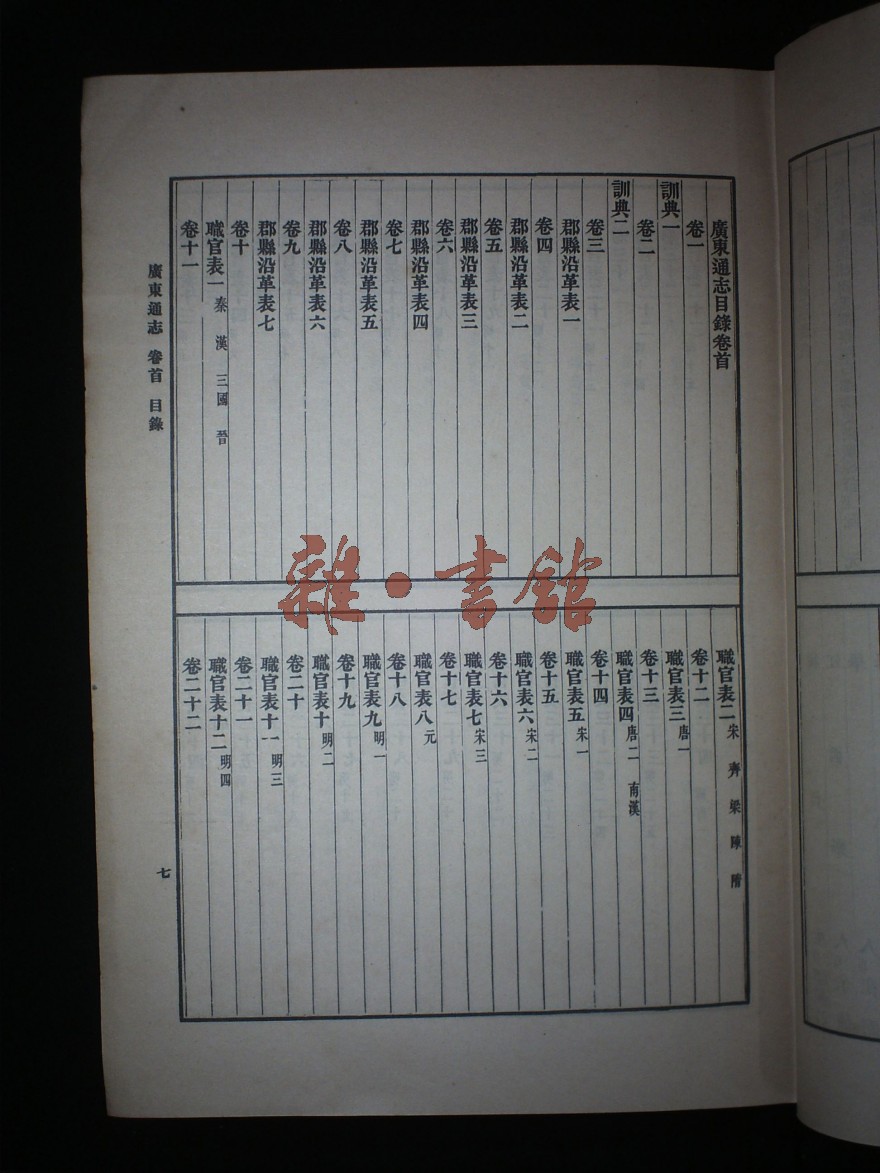 廣東通志目錄卷首
卷一
訓典一
卷二
訓典二
卷三
郡縣沿革表一
卷四
郡縣沿革表二
卷五
郡縣沿革表三
卷六
郡縣沿革表四
卷七
郡縣沿革表五
卷八
郡縣沿革表六
卷九
郡縣沿革表七
卷十
職官表一 秦 漢 三國 晉
卷十一
職官表二 宋 齊 梁 陳 隋
卷十二
職官表三 唐一
卷十三
職官表四 唐二 南漢
卷十四
職官表五 宋一
卷十五
職官表六 宋二
卷十六
職官表七 宋三
卷十七
職官表八 元
卷十八
職官表九 明一
卷十九
職官表十 明二
卷二十
職官表十一 明三
卷二十一
職官表十二 明四
卷二十二
廣東通志 卷首 目錄
七
雜·書館